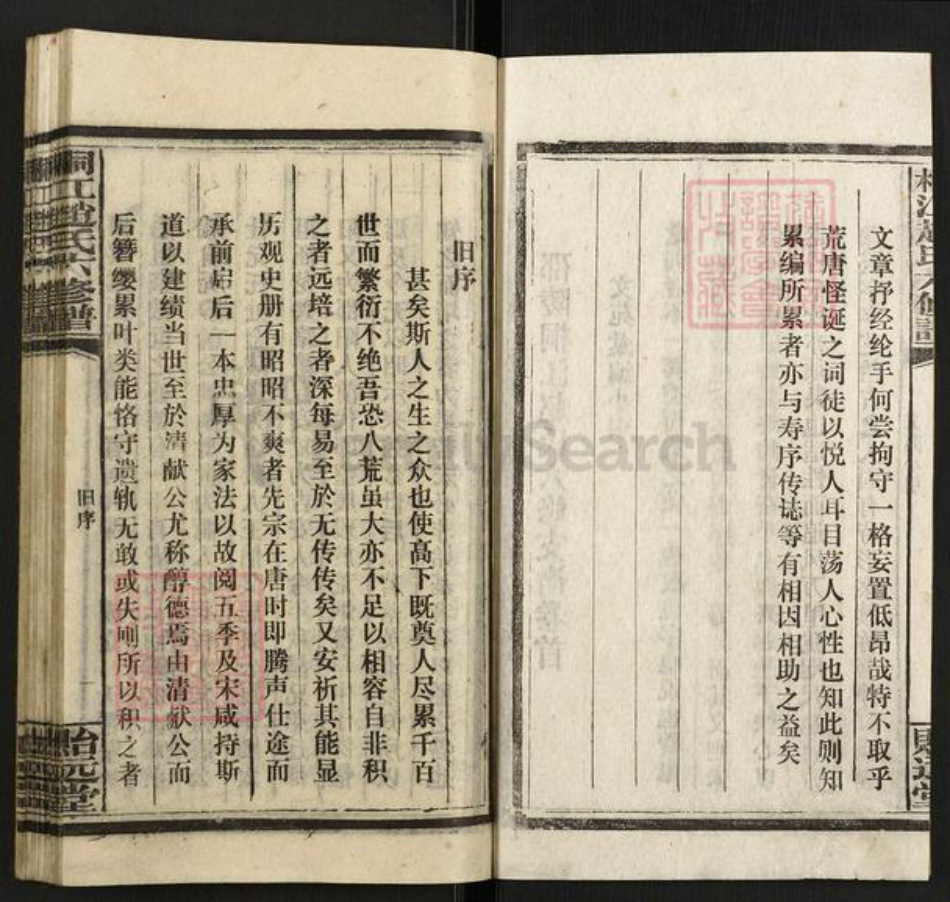 文章抒经纶手何尝拘守一格妄置低昂哉特不取乎
荒唐怪诞之词徒以悦人耳目荡人心性也知此则知
累编所累者亦与寿序传志等有相因相助之益矣
旧序
甚矣斯人之生之众也使高下既奠人尽累千百
世而繁衍不绝吾恐八荒虽大亦不足以相容自非积
之者远培之者深每易至於无传传矣又安祈其能显
历观史册有昭昭不爽者先宗在唐时即腾声仕途而
承前启后一本忠厚为家法以故阅五季及宋咸持斯
道以建绩当世至於清献公尤称醇德焉由清献公而
后簪缨累叶类能恪守遗轨无敢或失则所以积之者
桐江赵氏六修谱
旧序
一
Search